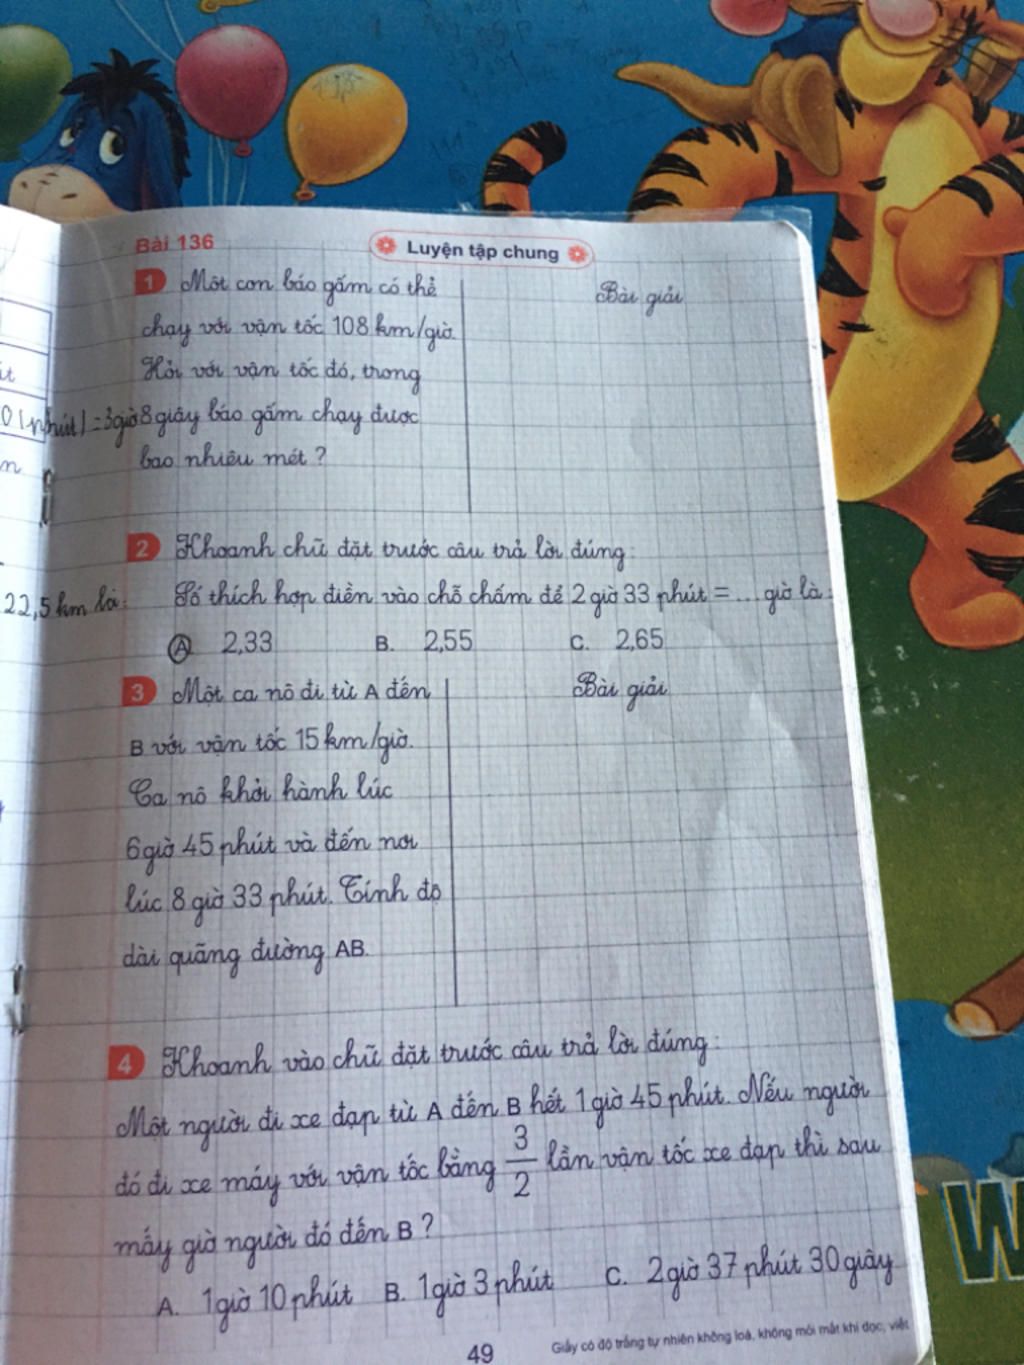 Bài 136
Luyện tập chung
1 Một con báo gấm có thể
chạy với vận tốc 108 km/giờ.
Hỏi với vận tốc đó, trong
8 giây báo gấm chạy được
bao nhiêu mét?
Bài giải
= 3 giờ
2 Khoanh chữ đặt trước câu trả lời đúng:
22,5 km là:
Số thích hợp điền vào chỗ chấm để 2 giờ 33 phút = ... giờ là:
A 2,33 B. 2,55 C. 2,65
3 Một ca nô đi từ A đến
B với vận tốc 15 km/giờ.
Ca nô khởi hành lúc
6 giờ 45 phút và đến nơi
lúc 8 giờ 33 phút. Tính độ
dài quãng đường AB.
Bài giải
4 Khoanh vào chữ đặt trước câu trả lời đúng:
Một người đi xe đạp từ A đến B hết 1 giờ 45 phút. Nếu người
đó đi xe máy với vận tốc bằng 3/2 lần vận tốc xe đạp thì sau
mấy giờ người đó đến B?
A. 1 giờ 10 phút B. 1 giờ 3 phút C. 2 giờ 37 phút 30 giây
49
Giấy có độ trắng tự nhiên không loá, không mỏi mắt khi đọc, viết
W